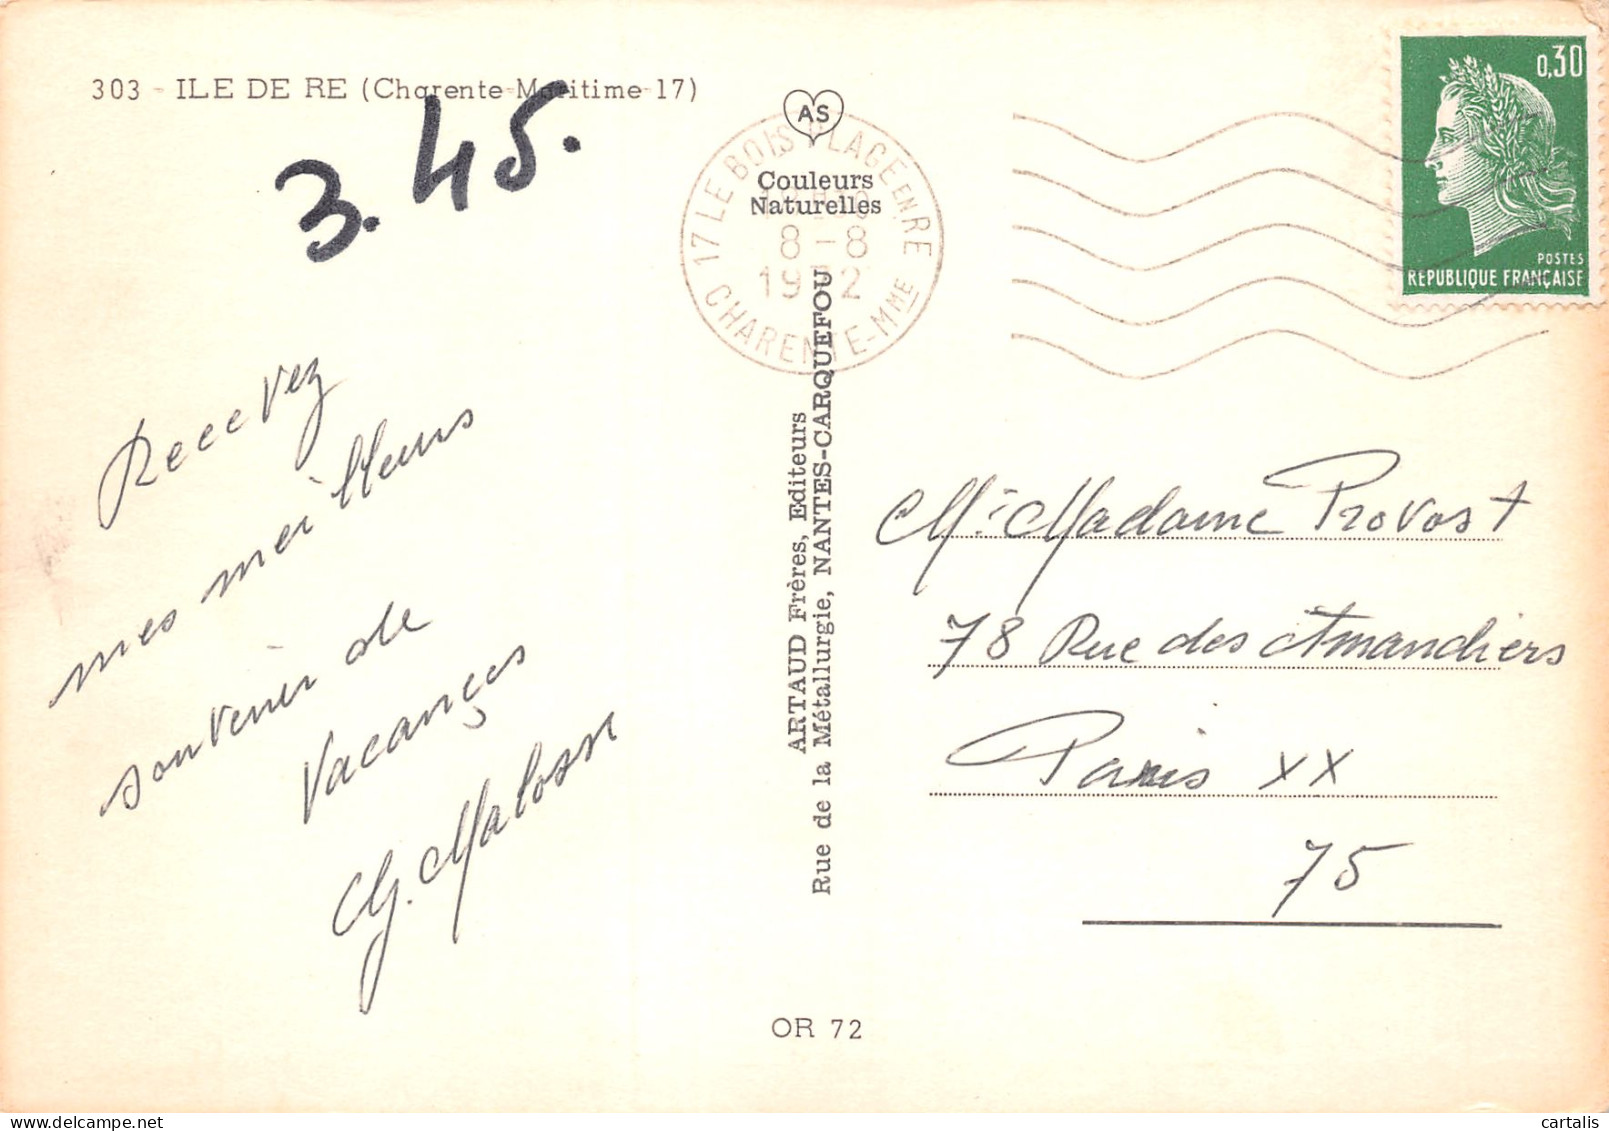 303 - ILE DE RE (Charente-Maritime-17)
3.45.
AS
Couleurs
Naturelles
17 LE BOIS PLAGE EN RE
8 - 8
1972
CHARENTE-Mme
0,30
POSTES
REPUBLIQUE FRANÇAISE
Recevez
mes meilleurs
souvenir de
Vacances
ARTAUD Frères, Editeurs
Rue de la Métallurgie, NANTES-CARQUEFOU
M. Madame Provost
78 Rue des Amandiers
Paris XX
75
OR 72
cartalis